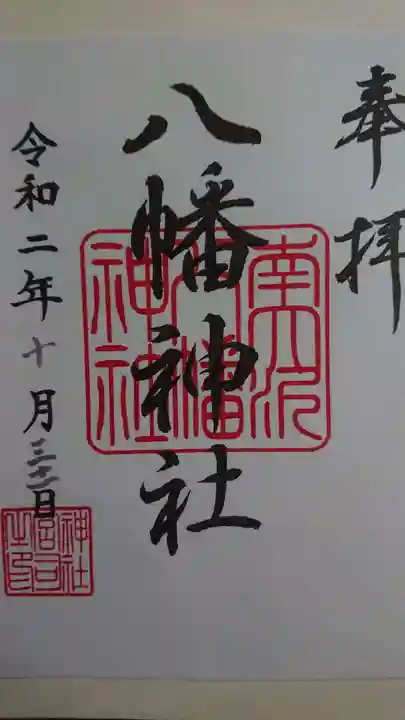 奉拝
八幡神社
令和二年十月三十一日
南
八幡
神社
神社
宮司
之印